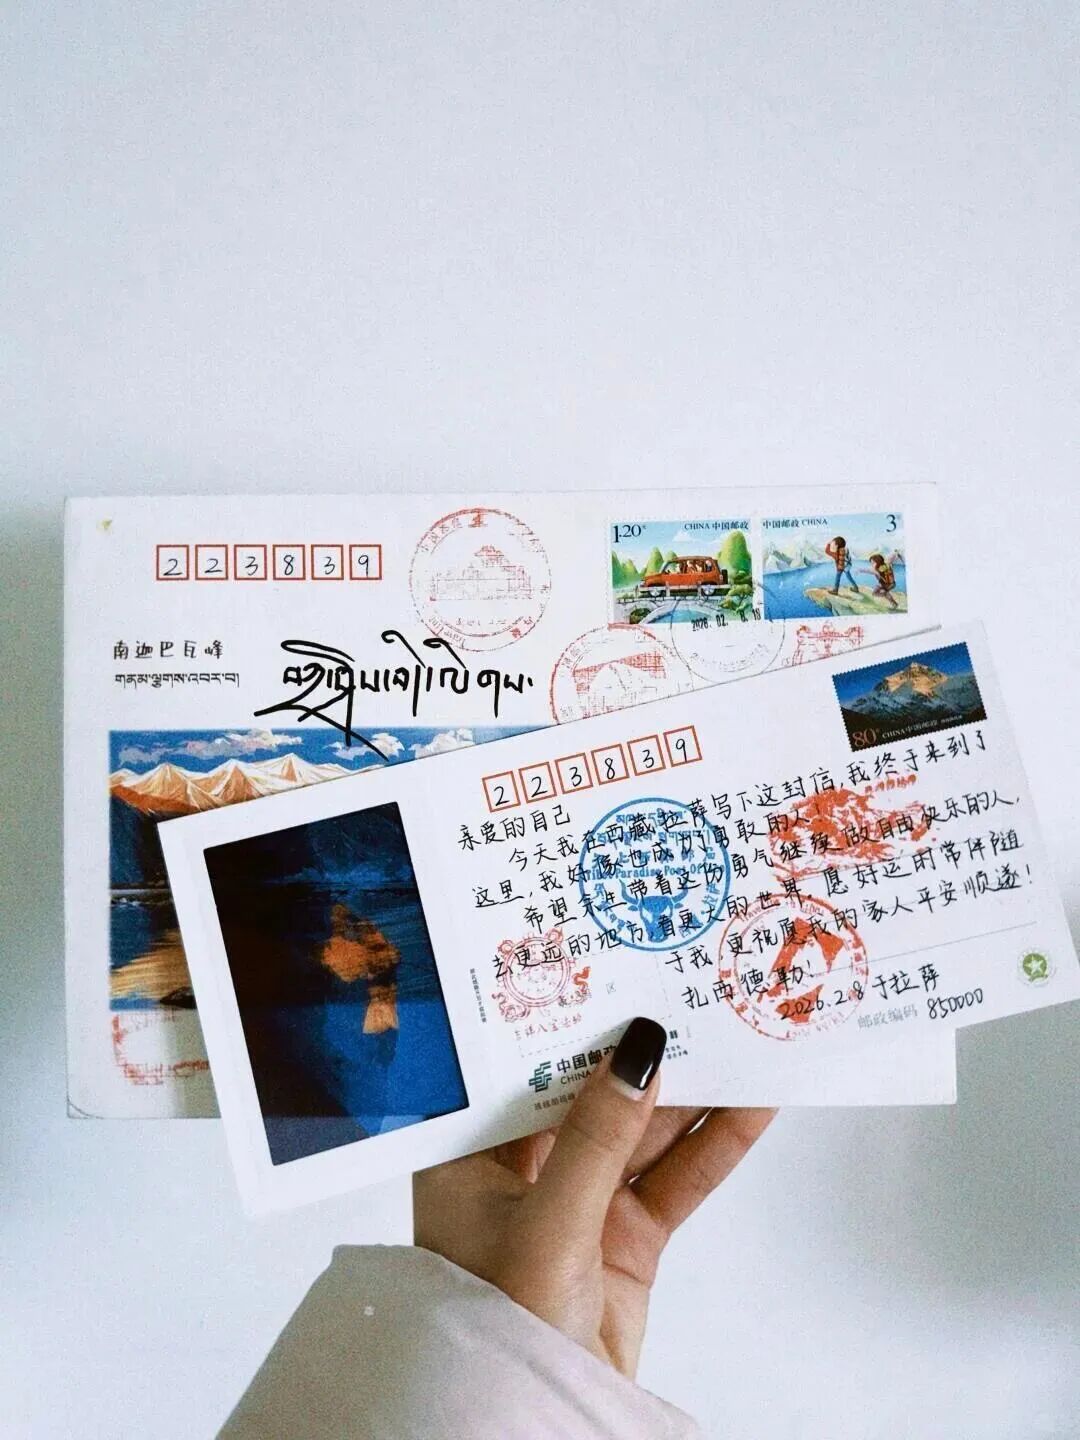 223839
1.20元
CHINA 中国邮政
中国邮政 CHINA
3元
2026.02.
南迦巴瓦峰
གནམ་ལྕགས་འབར་བ།
བཀྲ་ཤིས་བདེ་ལེགས
80分
CHINA 中国邮政
223839
亲爱的自己
今天我在西藏拉萨写下这封信,我终于来到了
这里,我好像也成为勇敢的人
希望余生带着这份勇气继续做自由快乐的人,
去更远的地方,看更大的世界 愿好运时常伴随
于我 更祝愿我的家人平安顺遂!
扎西德勒!
2026.2.8 于拉萨
Tibet Paradise Post Office
吉祥八宝
中国邮政
CHINA
邮政编码 850000